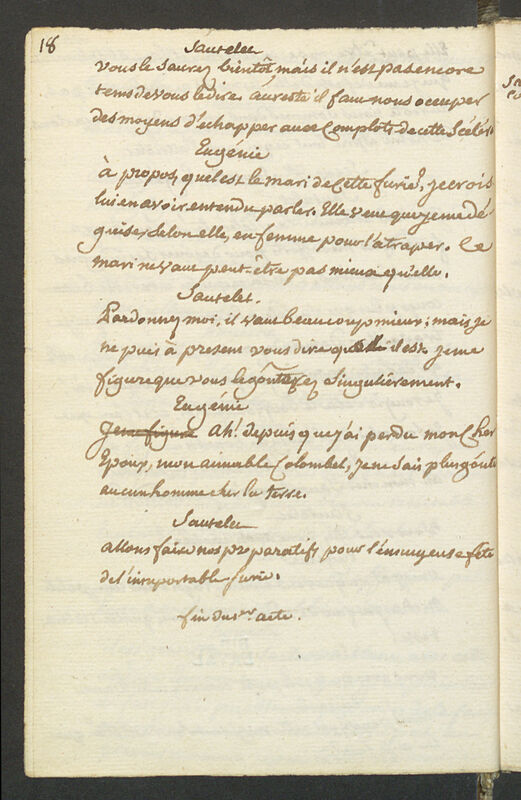 18
Sautelet
vous le saurez bientôt mais il n'est pas encore
tems de vous le dire. au reste il faut nous occuper
des moyens d'échapper aux Complots de cette Scélér
Eugénie
à propos, quel est le mari de cette furie? je crois
lui en avoir entendu parler. Elle veut que je me dé
guise, selon elle, en femme pour l'atraper. Ce
mari ne vaut peut-être pas mieux qu'elle.
Sautelet.
Pardonnez moi, il vaut beaucoup mieux; mais je
ne puis à present vous dire il est. je me
figure que vous le goûterez singulièrement.
Eugénie
Je me figure ah! depuis que j'ai perdu mon Cher
Epoux, mon aimable Colombel, je ne sais plus goûte
aucun homme sur la terre.
Sautelet
allons faire nos préparatifs pour l'ennuyeuse fête
de l'insuportable furie.
fin du 1er acte.